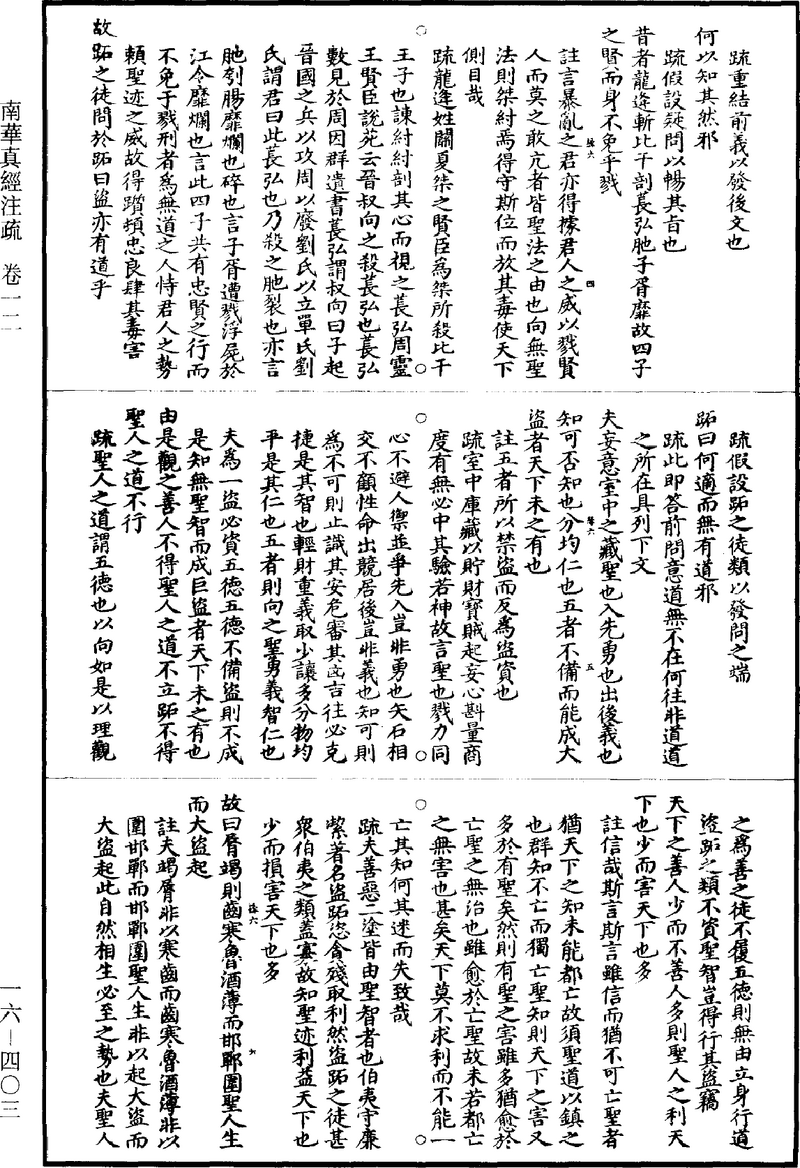 疏重結前義以發後文也
何以知其然邪
疏假設疑問以暢其旨也
昔者龍逄斬比干剖萇弘胣子胥靡故四子
之賢而身不免乎戮
註言暴亂之君亦得據君人之威以戮賢
人而莫之敢亢者皆聖法之由也向無聖
法則桀紂焉得守斯位而放其毒使天下
側目哉
疏龍逄姓關夏桀之賢臣爲桀所殺比干
王子也諫紂紂剖其心而視之萇弘周靈
王賢臣說苑云晉叔向之殺萇弘也萇弘
數見於周因群遺書萇弘謂叔向曰子起
晉國之兵以攻周以廢劉氏以立單氏劉
氏謂君曰此萇弘也乃殺之胣裂也亦言
胣刳腸靡爛也碎也言子胥遭戮浮屍於
江令靡爛也言此四子共有忠賢之行而
不免于戮刑者爲無道之人恃君人之勢
賴聖迹之威故得躓頓忠良肆其毒害
故跖之徒問於跖曰盜亦有道乎
疏假設跖之徒類以發問之端
跖曰何適而無有道邪
疏此即答前問意道無不在何往非道道
之所在具列下文
夫妄意室中之藏聖也入先勇也出後義也
知可否知也分均仁也五者不備而能成大
盜者天下未之有也
註五者所以禁盜而反爲盜資也
疏室中庫藏以貯財寶賊起妄心斟量商
度有無必中其驗若神故言聖也戮力同
心不避人禦並爭先入豈非勇也矢石相
交不顧性命出競居後豈非義也知可則
爲不可則止識其安危審其凶吉往必克
捷是其智也輕財重義取少讓多分物均
平是其仁也五者則向之聖勇義智仁也
夫為一盜必資五德五德不備盜則不成
是知無聖智而成巨盜者天下未之有也
由是觀之善人不得聖人之道不立跖不得
聖人之道不行
疏聖人之道謂五德也以向如是以理觀
之爲善之徒不履五德則無由立身行道
盜跖之類不資聖智豈得行其盜竊
天下之善人少而不善人多則聖人之利天
下也少而害天下也多
註信哉斯言斯言雖信而猶不可亡聖者
猶天下之知未能都亡故須聖道以鎮之
也群知不亡而獨亡聖知則天下之害又
多於有聖矣然則有聖之害雖多猶愈於
亡聖之無治也雖愈於亡聖故未若都亡
之無害也甚矣天下莫不求利而不能一
亡其知何其迷而失致哉
疏夫善惡二塗皆由聖智者也伯夷守廉
絜著名盜跖恣貪殘取利然盜跖之徒甚
眾伯夷之類蓋寡故知聖迹利益天下也
少而損害天下也多
故曰脣竭則齒寒魯酒薄而邯鄲圍聖人生
而大盜起
註夫竭脣非以寒齒而齒寒魯酒薄非以
圍邯鄲而邯鄲圍聖人生非以起大盜而
大盜起此自然相生必至之勢也夫聖人
南華真經注疏　卷一二
一六—四〇三